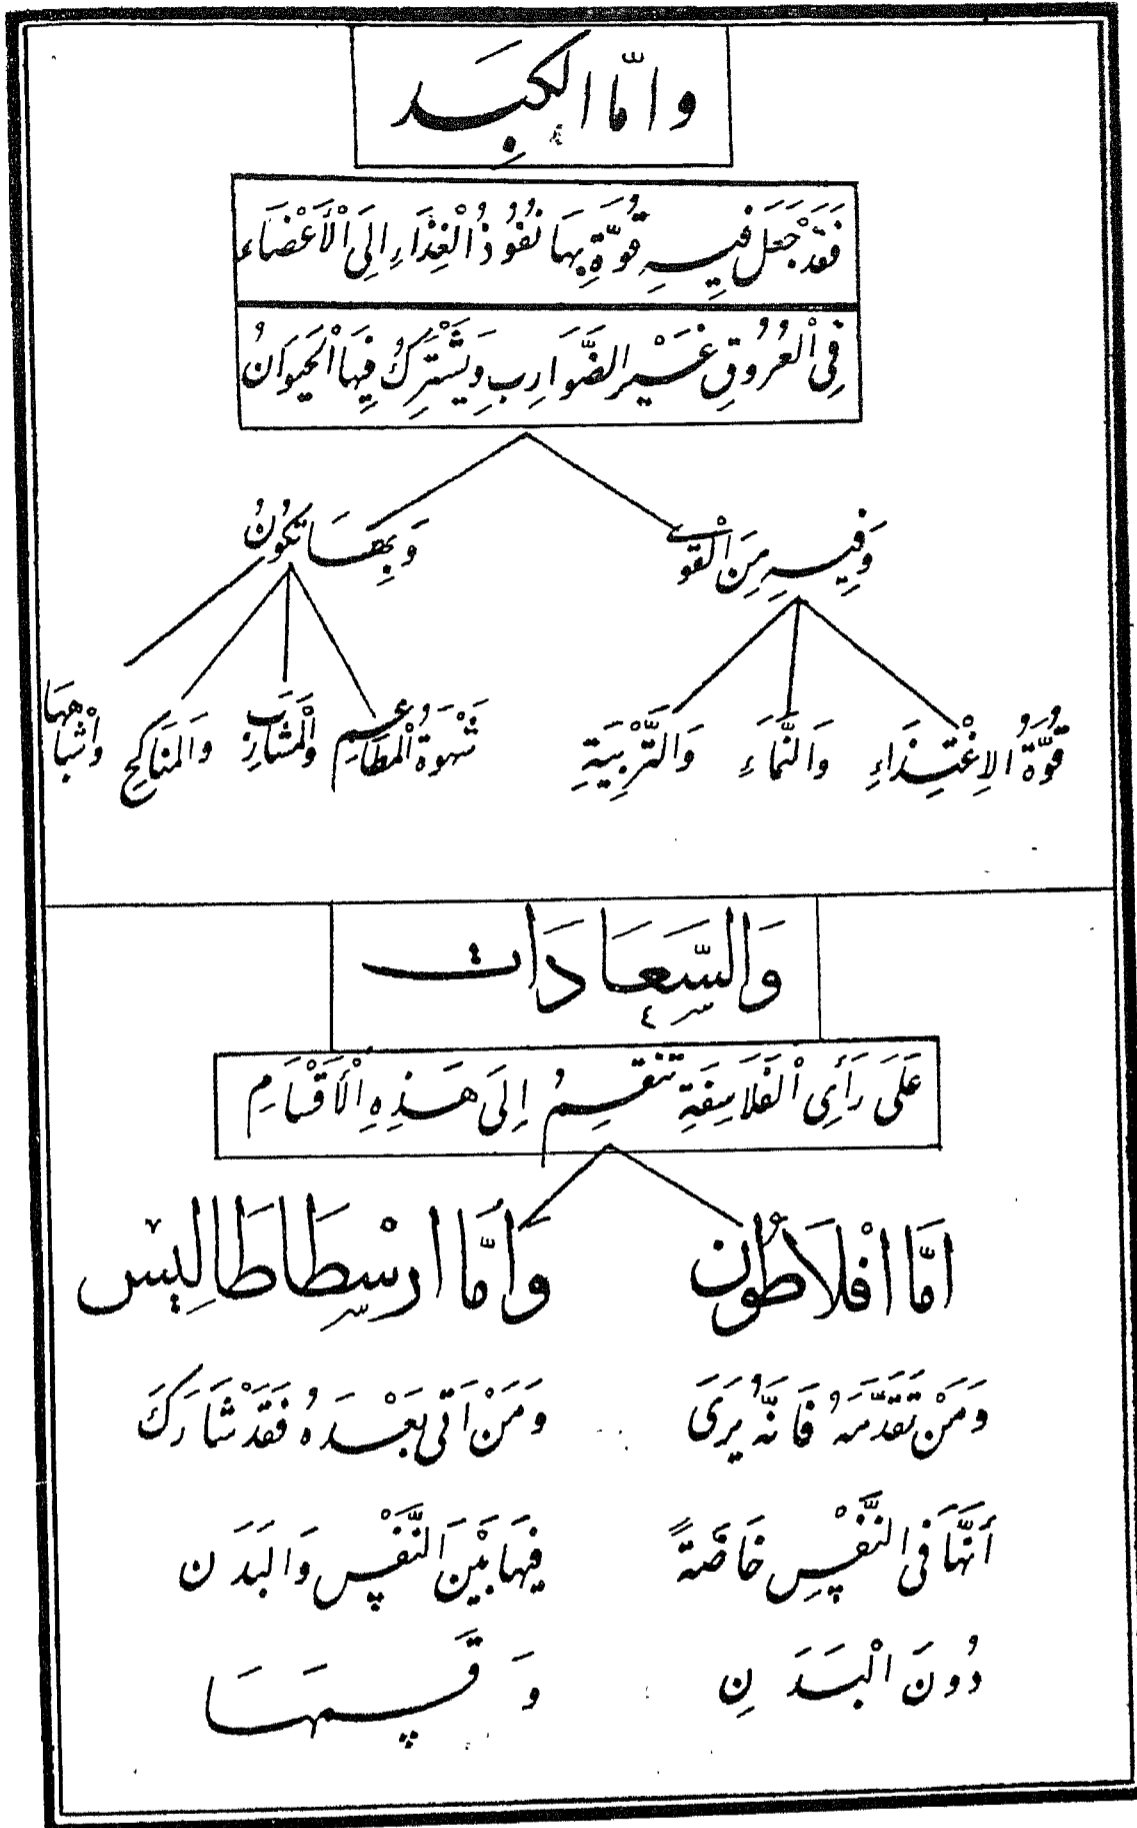 وَامَّا الكَبِد
فَقَدْ جَعَلَ فِيهِ قُوَّةٍ بِهَا نُفُوذُ الْغِذَاءِ اِلَى الْأَعْضَاء
فِى الْعُرُوقِ غَيْرِ الضَّوَارِبِ وَيَشْتَرِكُ فِيهَا الْحَيَوَانُ
وَفِيهِ مِنَ الْقُوَى وَبِهَا تَكُونُ
قُوَّةُ الِاغْتِذَاءِ وَالنَّمَاءِ وَالتَّرْبِيَةِ شَهْوَةُ الْمَطَاعِمِ وَالْمَشَارِبَ وَالمَنَاكِحِ وَاَشْبَاهِهَا
وَالسَّعَادَات
عَلَى رَأْىِ الْفَلَاسِفَةِ تَنْقَسِمُ اِلَى هَذِهِ الْأَقْسَامِ
اَمَّا افْلَاطُون وَاَمَّا ارِسْطَاطَالِيْس
وَمَنْ تَقَدَّمَهُ فَانَّهُ يَرَى
أَنَّهَا فِى النَّفْسِ خَاصَّةً
دُونَ الْبَدَنِ
وَمَنْ اَتَى بَعْدَهُ فَقَدْ شَارَكَ
فِيهَا بَيْنَ النَّفْسِ وَالبَدَن
وَقَسَّمَهَا